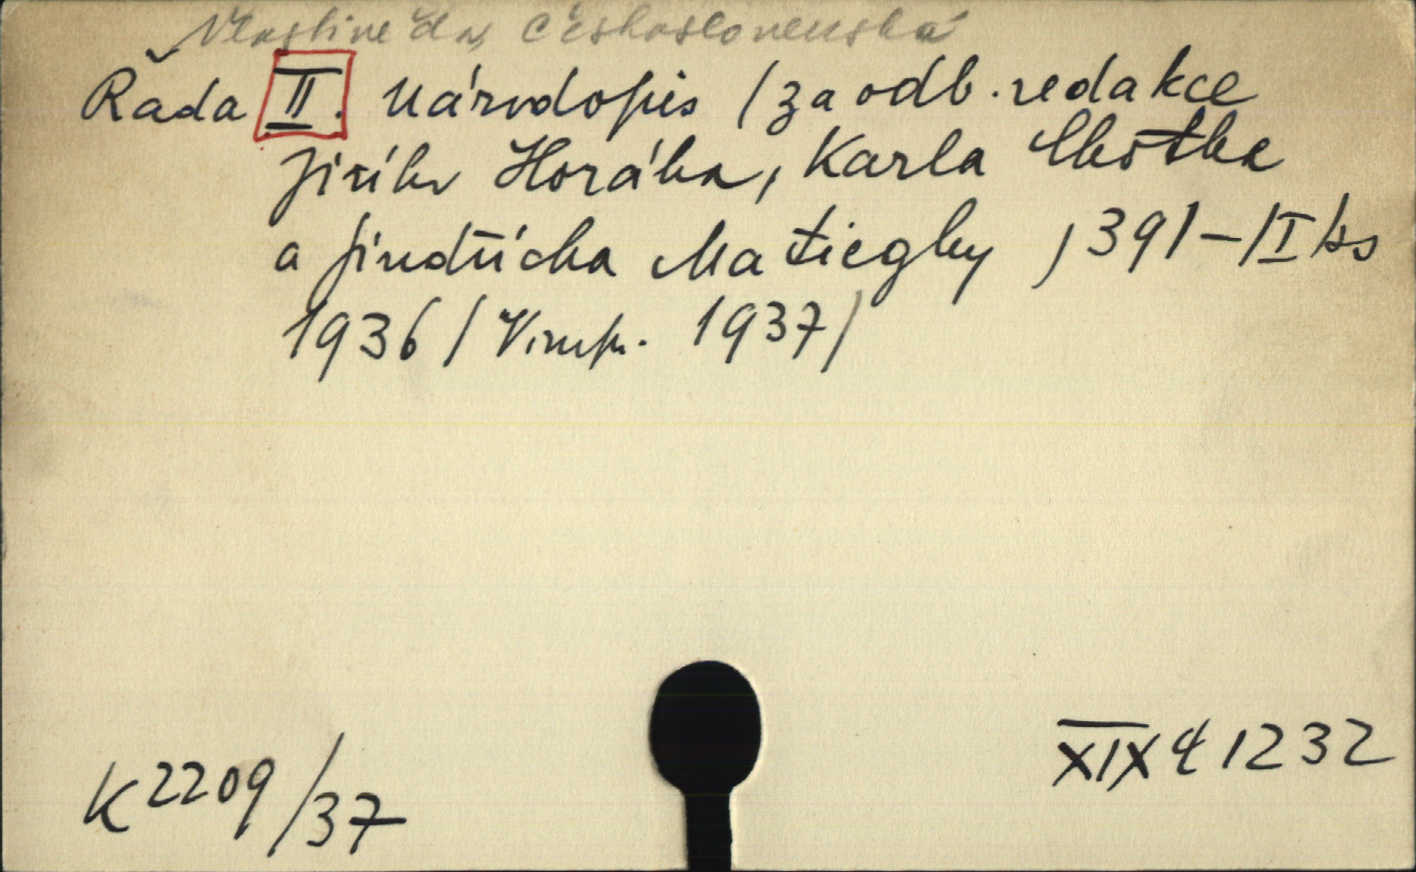 Vlastivěda Československá
Řada II. Národopis /za odb. redakce
Jiřího Horáka, Karla Chotka
a Jindřicha Matiegky, 391-/I/ks
1936 /V. imp. 1937/
K 2209/37
XIX 4 1232